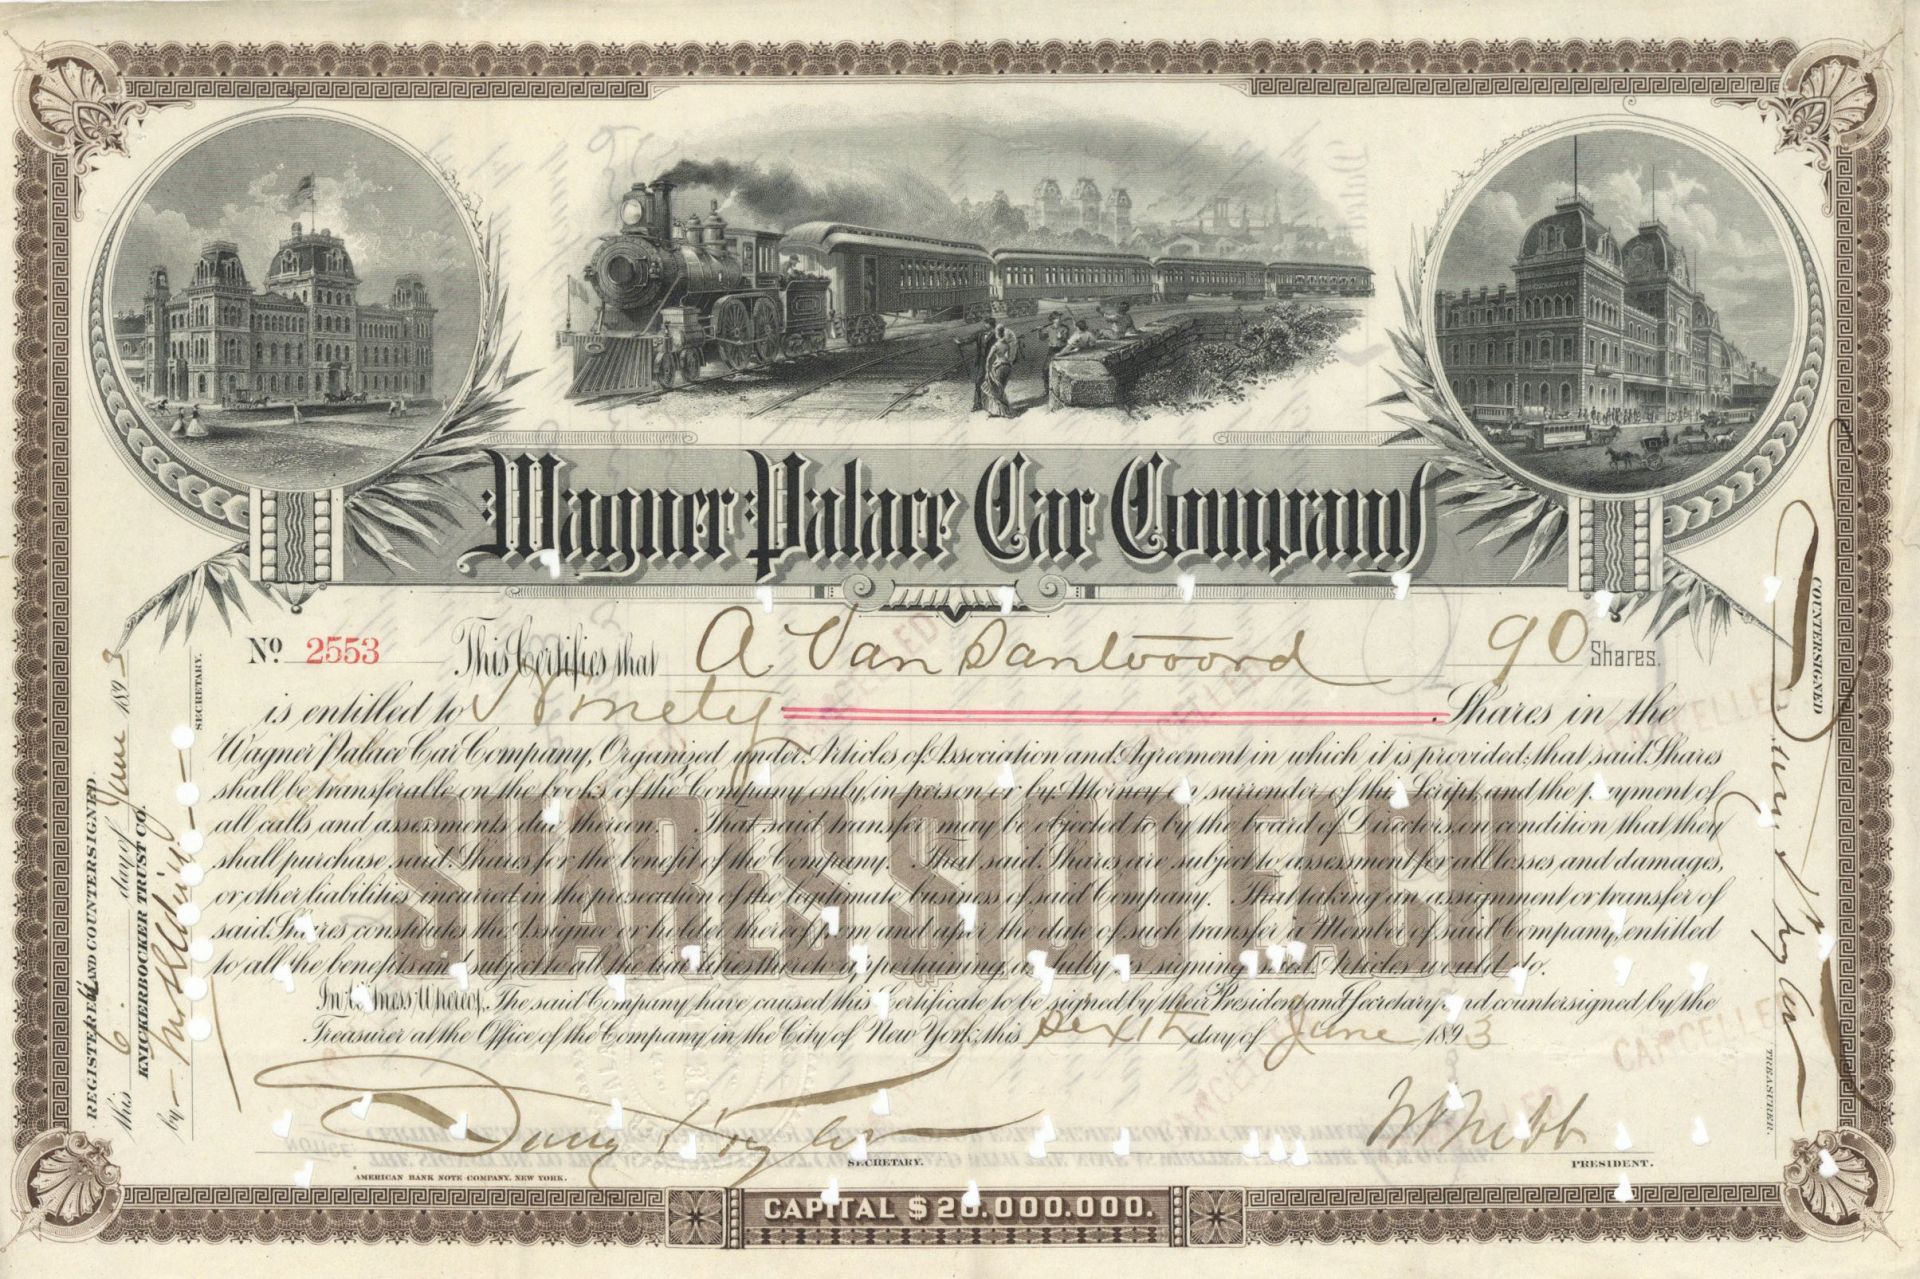 Wagner Palace Car Company
No. 2553 This Certifies that A Van Santvoord 90 Shares.
is entitled to Ninety Shares in the
Wagner Palace Car Company, Organized under Articles of Association and Agreement in which it is provided: that said Shares
shall be transferable on the books of the Company only, in person or by Attorney on surrender of this Script, and the payment of
all calls and assessments due thereon. That said transfer may be objected to by the board of Directors, on condition that they
shall purchase said Shares for the benefit of the Company. That said Shares are subject to assessment for all losses and damages,
or other liabilities incurred in the prosecution of the legitimate business of said Company. That taking an assignment or transfer of
said Shares constitutes the Assignee or holder thereof from and after the date of such transfer a Member of said Company, entitled
to all the benefits and subject to all the liabilities thereto appertaining, as fully as signing said Articles would do.
SHARES $100 EACH
In Witness Whereof, The said Company have caused this Certificate to be signed by their President and Secretary and countersigned by the
Treasurer at the Office of the Company in the City of New York, this Sexith day of June 1893
SECRETARY.
PRESIDENT.
AMERICAN BANK NOTE COMPANY, NEW YORK.
CAPITAL $20.000.000.
REGISTERED AND COUNTERSIGNED
this 6 day of June 1893
KNICKERBOCKER TRUST CO.
by
SECRETARY.
COUNTERSIGNED
TREASURER.
CANCELLED
CANCELLED
CANCELLED
CANCELLED
CANCELLED